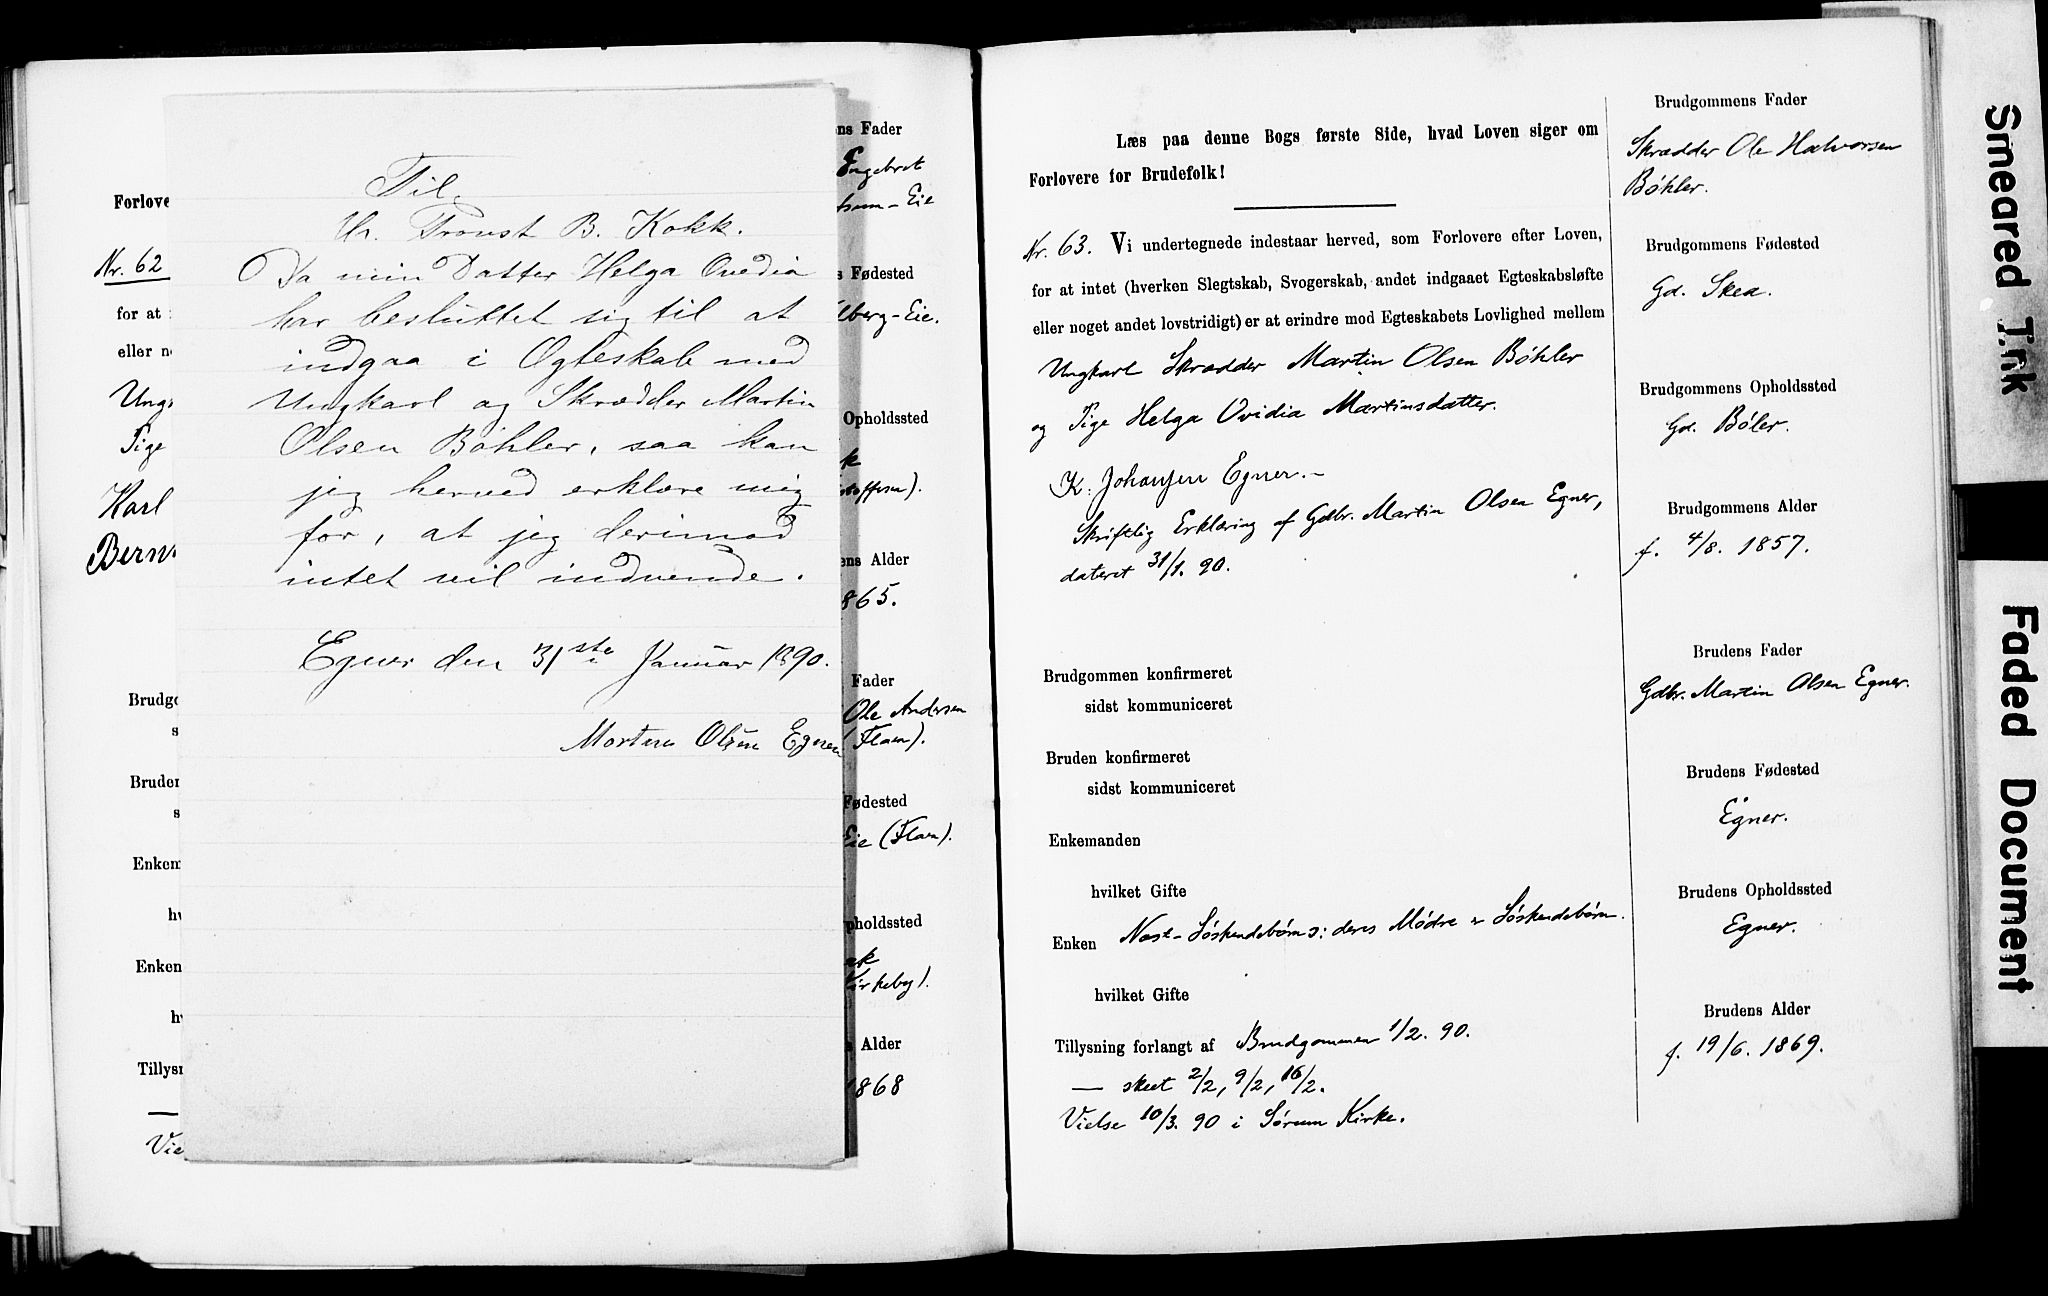 Forlove
Nr. 62
for at
eller n
Ung
Pige
Karl
Bern
Brudg
s
Bruden
s
Enkem
hv
Enken
hv
Tillysn
Vie
Til
Hr. Provst B. Kokk.
Da min Datter Helga Ovedia
har besluttet sig til at
indgaa i Ægteskab med
Ungkarl og Skrædder Martin
Olsen Bøhler, saa kan
jeg herved erklære mig
for, at jeg derimod
intet vil indvende.
Egner den 31ste Januar 1890.
Morten Olsen Egner
ns Fader
Engebret
Eie
s Fødested
lberg-Eie.
Opholdssted
k
offersen).
ens Alder
865.
Fader
Ole Andersen
(Flaen).
Fødested
Eie (Flaen).
pholdssted
ak
Kirkeby).
s Alder
1868
Læs paa denne Bogs første Side, hvad Loven siger om
Forlovere for Brudefolk!
Nr. 63. Vi undertegnede indestaar herved, som Forlovere efter Loven,
for at intet (hverken Slegtskab, Svogerskab, andet indgaaet Egteskabsløfte
eller noget andet lovstridigt) er at erindre mod Egteskabets Lovlighed mellem
Ungkarl Skrædder Martin Olsen Bøhler
og Pige Helga Ovidia Martinsdatter.
K: Johansen Egner.-
Skriftlig Erklæring af Gdbr. Martin Olsen Egner,
dateret 31/1. 90.
Brudgommen konfirmeret
sidst kommuniceret
Bruden konfirmeret
sidst kommuniceret
Enkemanden
hvilket Gifte
Enken Næst-Søskendebørn ɔ: deres Mødre er Søskendebørn.
hvilket Gifte
Tillysning forlangt af Brudgommen 1/2. 90.
— skeet 2/2, 9/2, 16/2.
Vielse 10/3. 90 i Sørum Kirke.
Brudgommens Fader
Skrædder Ole Halvorsen
Bøhler.
Brudgommens Fødested
Gd. Skea.
Brudgommens Opholdssted
Gd. Bøler.
Brudgommens Alder
f. 4/8. 1857.
Brudens Fader
Gdbr. Martin Olsen Egner.
Brudens Fødested
Egner.
Brudens Opholdssted
Egner.
Brudens Alder
f. 19/6. 1869.
Smeared Ink
Faded Document